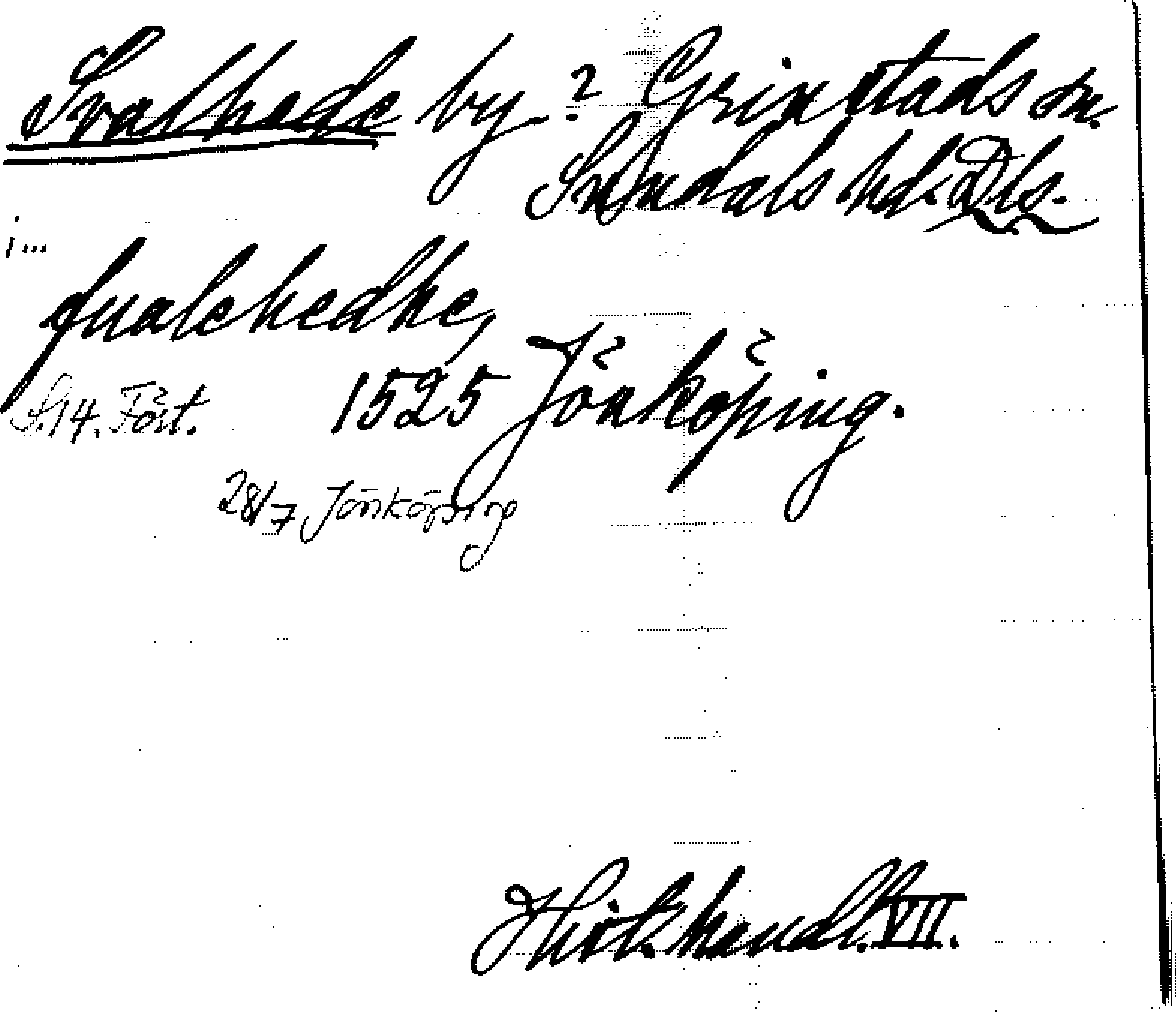 Svalhede by? Grinstads sn.
Sundals hd. Dls.
i...
fualehedhe,
S. 14. Fört. 1525 Jönköping.
28/7 Jönköping
Hist. handl. VII.